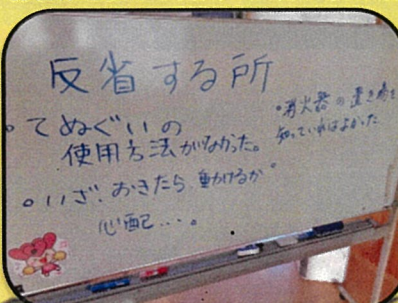 反省する所
。てぬぐいの
使用方法がなかった。
。いざ、おきたら動けるか
心配・・・。
。消火器の置き場を
知っていればよかった